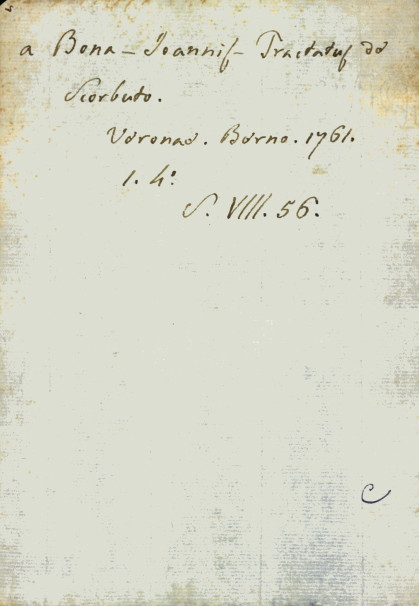 a Bona - Joannis - Tractatus de
Scorbuto.
Veronae. Berno. 1761.
1. 4°.
S. VIII. 56.
C